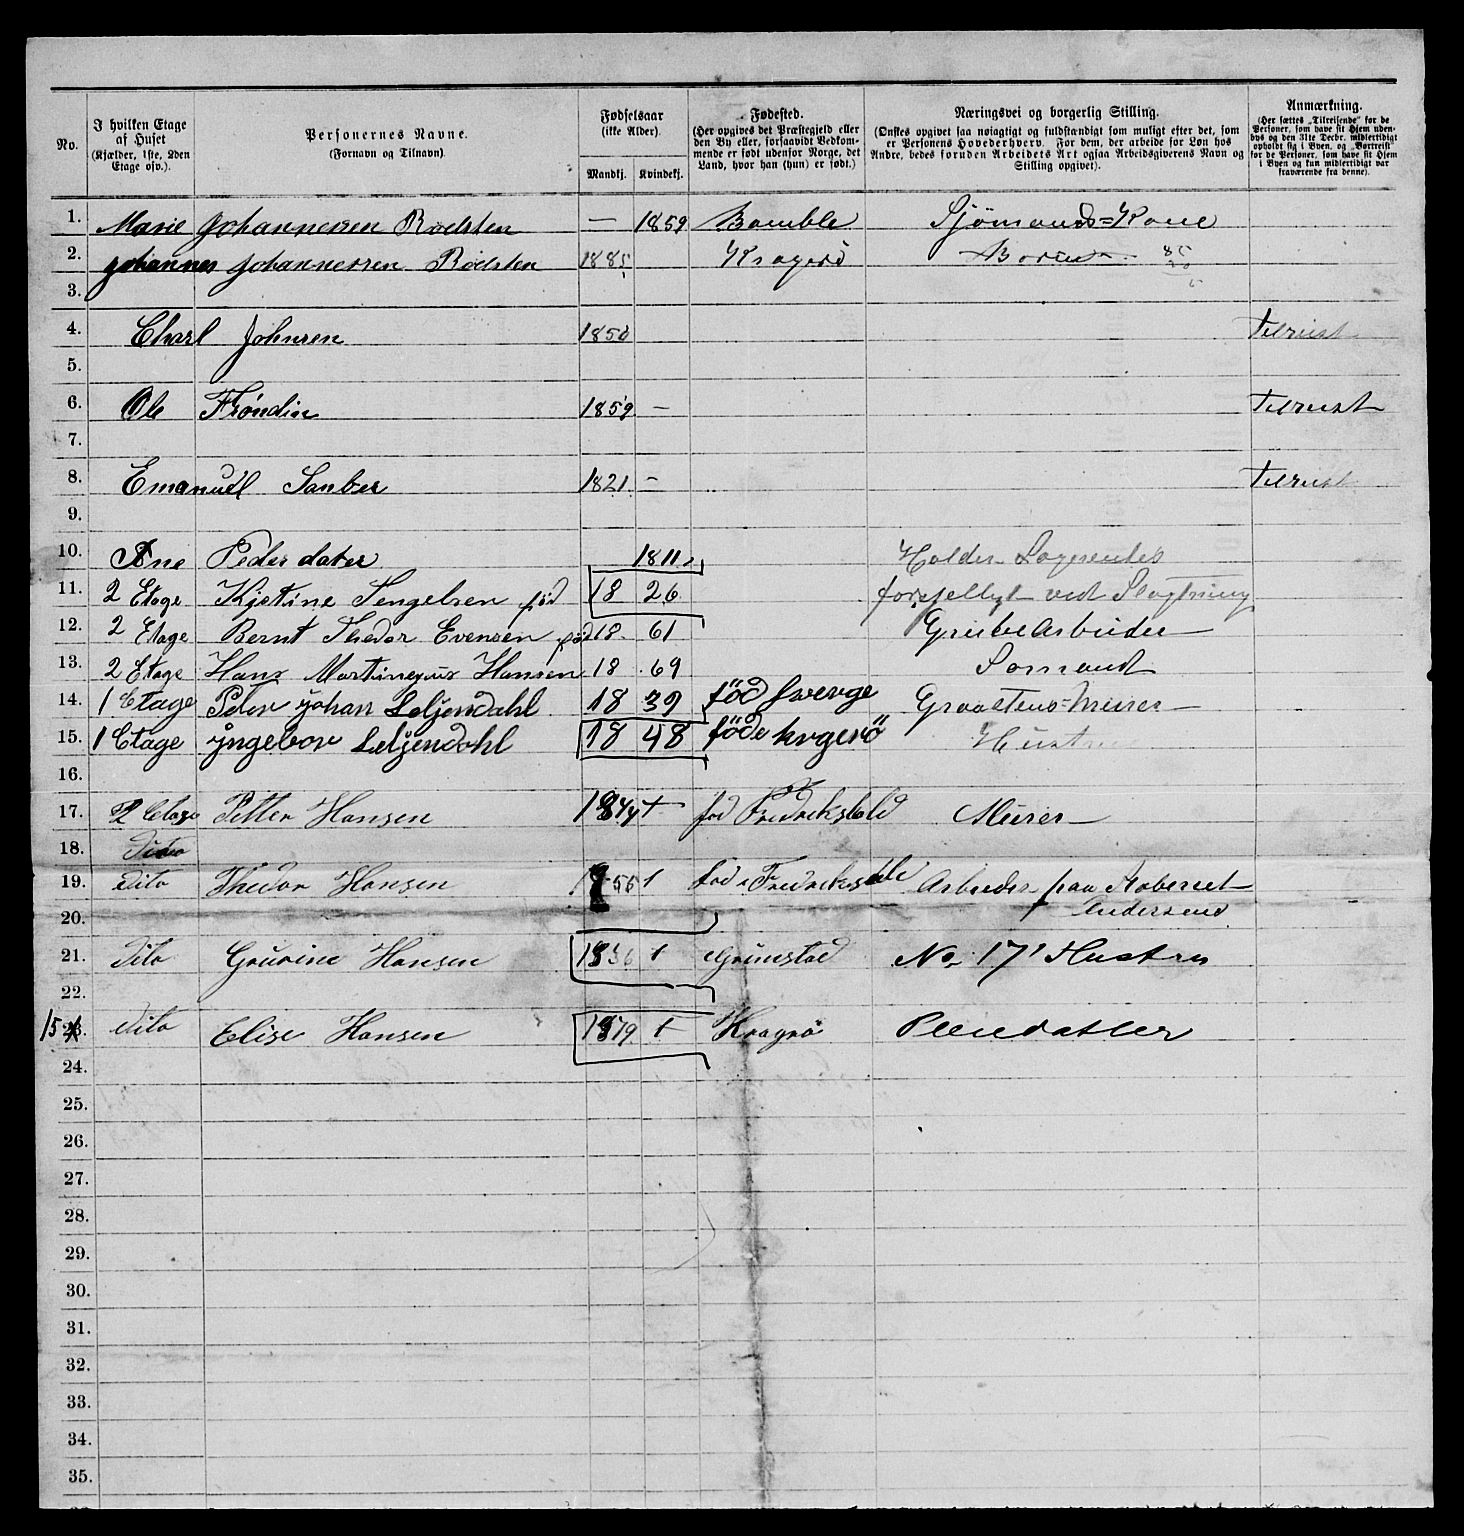 No. I hvilken Etage af Huset (Kjælder, 1ste, 2den Etage osv.). Personernes Navne. (Fornavn og Tilnavn). Fødselsaar (ikke Alder). Mandkj. Kvindekj. Fødested. (Her opgives det Præstegjeld eller den By eller, forsaavidt Vedkommende er født udenfor Norge, det Land, hvor han (hun) er født.) Næringsvei og borgerlig Stilling. (Ønskes opgivet saa nøiagtigt og fuldstændigt som muligt efter det, som er Personens Hovederhverv. For dem, der arbeide for Løn hos Andre, bedes foruden Arbeidets Art ogsaa Arbeidsgiverens Navn og Stilling opgivet). Anmærkning. (Her sættes „Tilreisende" for de Personer, som have sit Hjem udenbys og den 31te Decbr. midlertidigt opholdt sig i Byen, og „Bortreist" for de Personer, som have sit Hjem i Byen og kun midlertidigt var fraværende fra denne).
1. Marie Johannesen Rødsten — 1859 Bamble Sjømands=Kone
2. Johannes Johannessen Rødsten 1885 Kragerø 85
3.
4. Charl Johnsen 1850 Tilreist
5.
6. Ole Trøndin 1859 — Tilreist
7.
8. Emanuel Sanber 1821 — Tilreist
9.
10. Ane Pedersdater 1811 Holder Logerende
11. 2 Etage Kjstine Tengelsen fød 18 26 ved
12. 2 Etage Bernt Thedor Evensen fød 18 61 Grube Arbeider
13. 2 Etage Hans Martineyus Hansen 18 69 Somand
14. 1 Etage Peter Johan Leljendahl 18 39 föd Sverge Graastens=Murer
15. 1 Etage Yngebor Leljendahl 18 48 föde krgerö Hustru
16.
17. 2 Etage Petter Hansen 1844 + fød Fredrikshald Murer
18. Dito
19. dito Thedor Hansen 1856 + fød i Fredrikshald Arbeider paa
20. Andersens
21. dito Gurine Hansen 1836 + Grimstad No. 17' Hustru
22.
15 23. dito Elise Hansen 1879 + Kragrø Pleiedatter
24.
25.
26.
27.
28.
29.
30.
31.
32.
33.
34.
35.